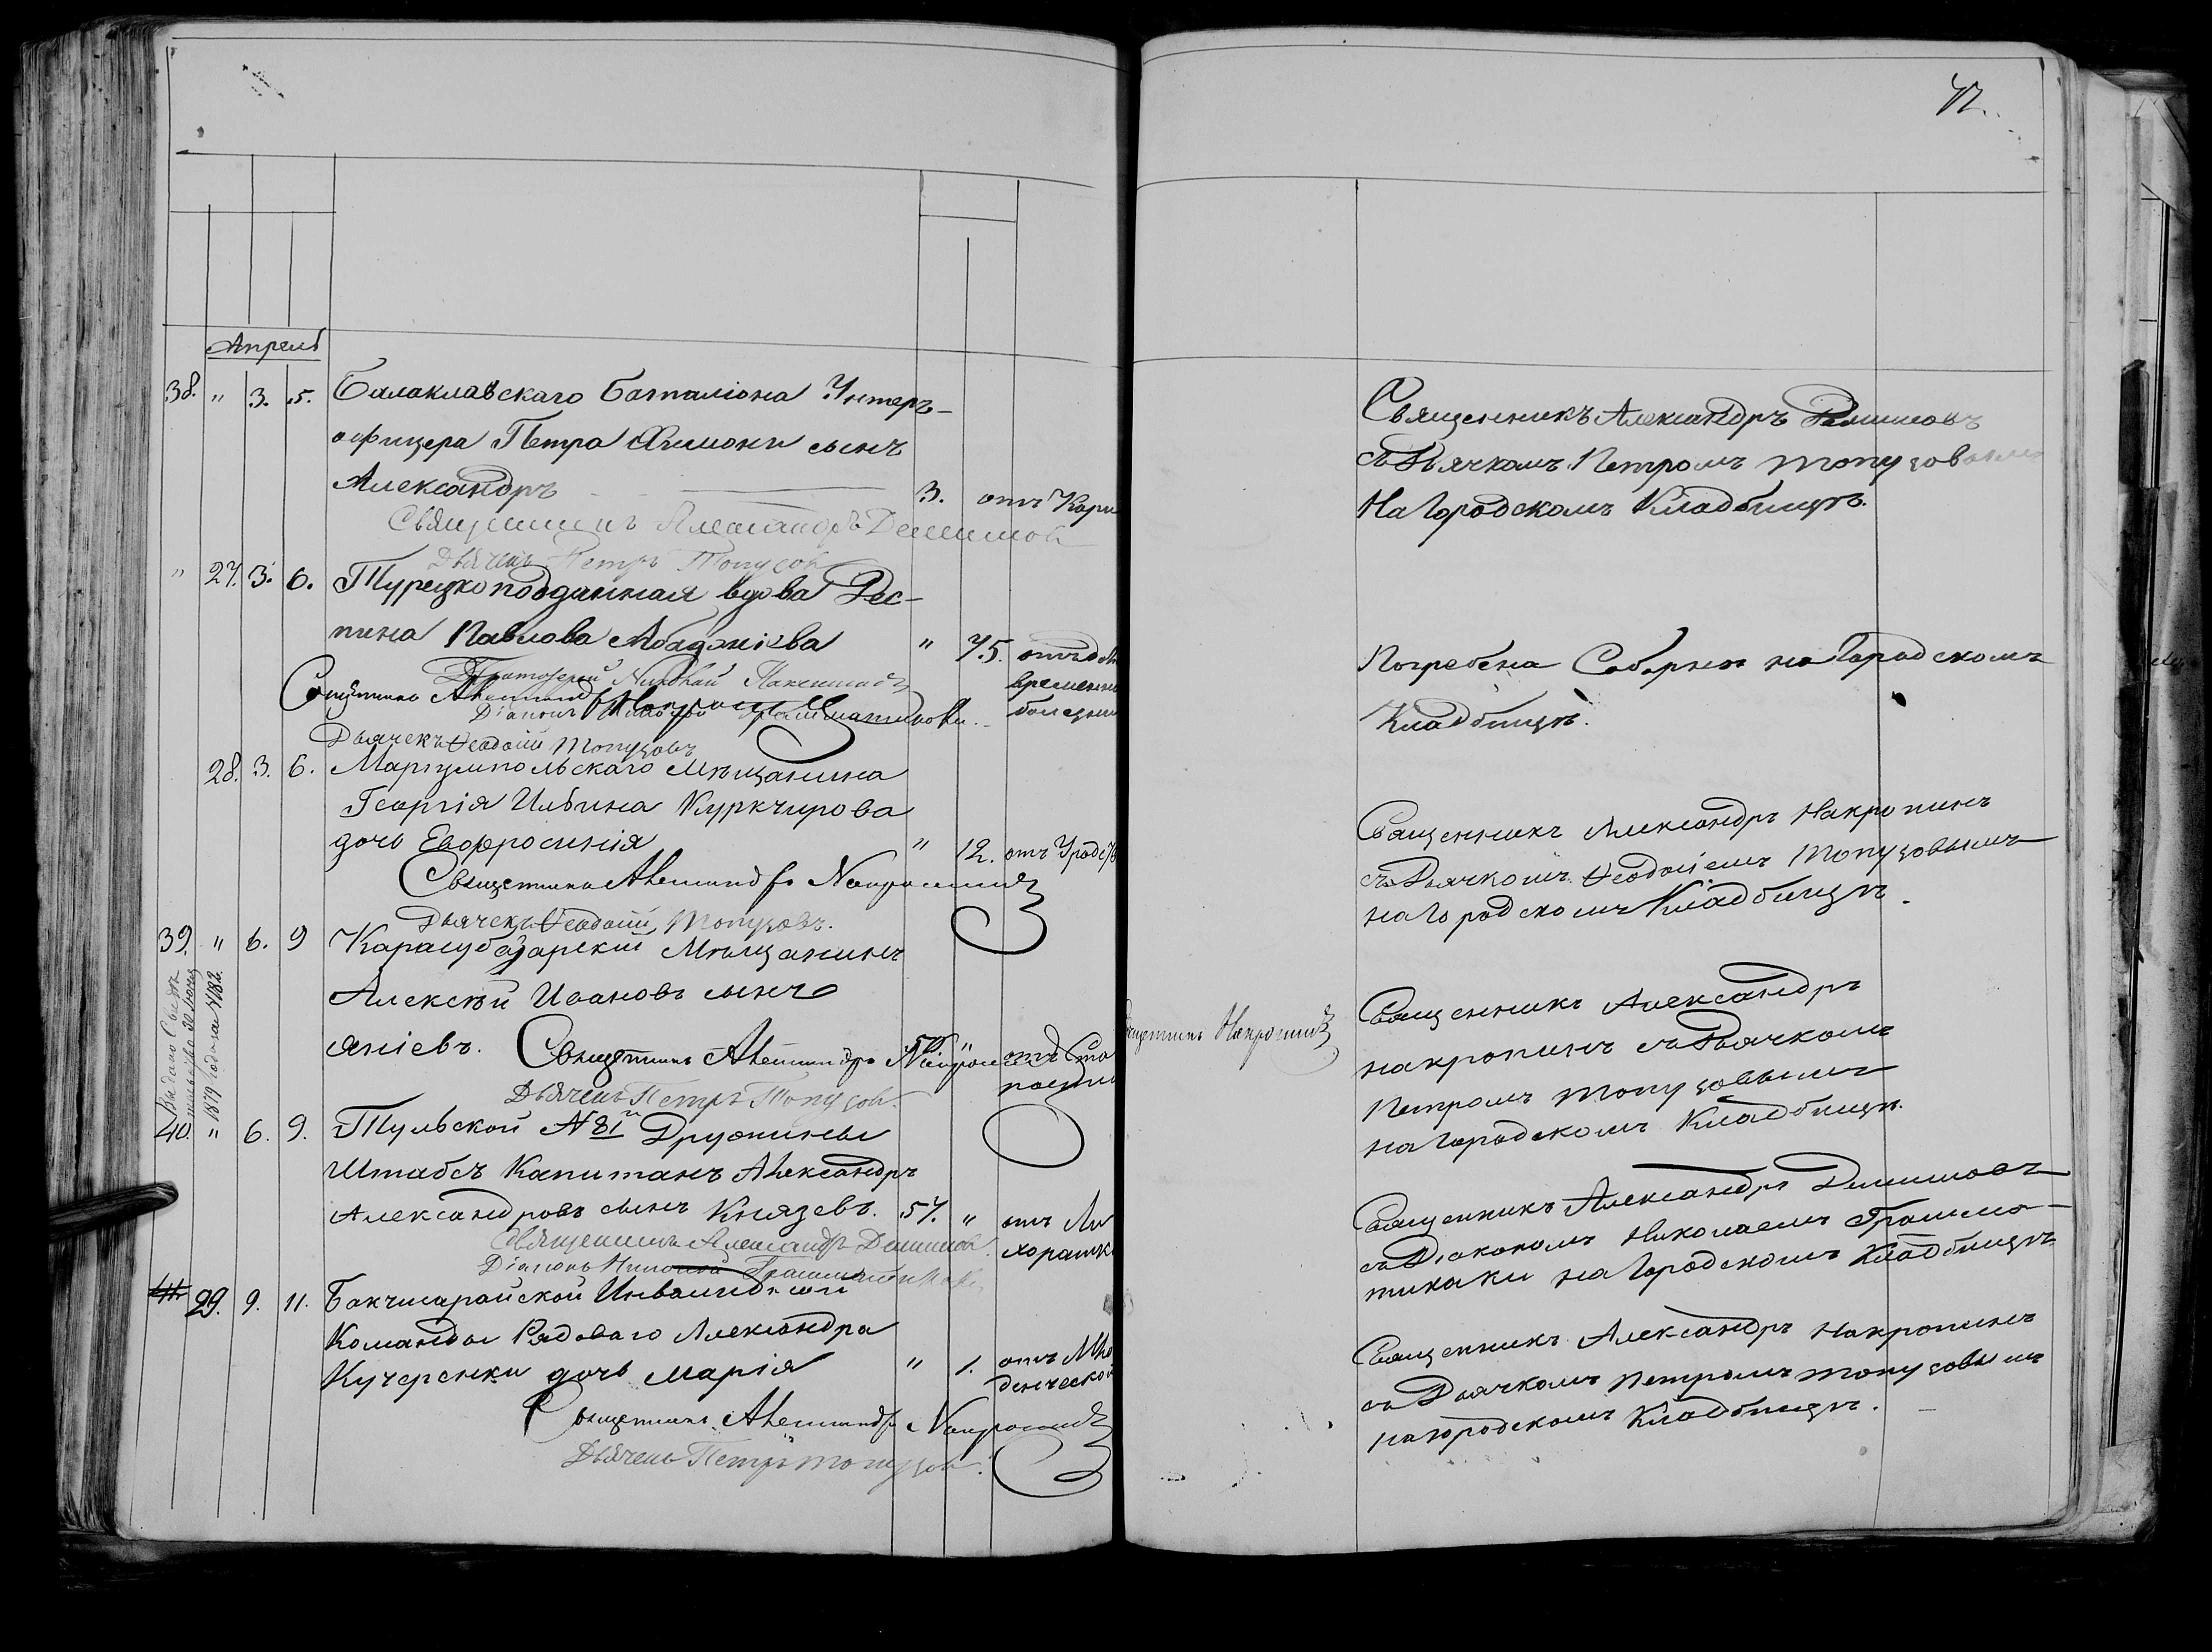 42.
Апрель
38. " 3. 5. Балаклавскаго баталіона Унтеръ-
офицера Петра Химони сынъ
Александръ 3. отъ Кори
Священникъ Александръ Демишов
Дьячекъ Петръ Топузов
" 27. 3. 6. Турецкоподданная вдова Дес-
пина Павлова " 75. отъ
временн
болезни
Протоіерей
Священникъ Александръ Накропинъ
Діаконъ Николай Грамматикаки
Дьячекъ Ѳеодосій Топузовъ
28. 3. 6. Маріумпольскаго мѣщанина
Георгія Ильина Куркчирова
дочь Евфросинія " 12. отъ
Священникъ Александръ Накропинъ
Дьячекъ Ѳеодосій Топузовъ.
39. " 6. 9 Карасубазарскій Мѣщанинъ
Алексѣй Ивановъ сынъ
яніевъ. 50 " отъ Ста
рости
Священникъ Александръ Накропинъ
Дьячекъ Петръ Топузов.
Выдано Свидѣ
тельство
1879 года №182.
40. " 6. 9. Тульской №81й Дружины
Штабсъ Капитанъ Александръ
Александровъ сынъ Князевъ. 57. " отъ Ли
хорадк
Священникъ Александръ Демишов.
Діаконъ Николай Грамматикаки
41. 29. 9. 11. Бакчисарайской Инвалидной
Команды Рядоваго Александра
Кучеренки дочь Марія " 1. отъ Мла
денческой
Священникъ Александръ Накропинъ
Дьячекъ Петръ Топузов.
Священникъ Александръ Демишовъ
съ Дьячкомъ Петромъ Топузовымъ
На Городскомъ Кладбищѣ.
Погребена Соборнѣ на Городскомъ
Кладбищѣ.
Священникъ Александръ Накропинъ
съ Дьячкомъ Ѳеодосіемъ Топузовымъ
на Городскомъ Кладбищѣ.
Священникъ Накропинъ
Священникъ Александръ
Накропинъ съ Дьячкомъ
Петромъ Топузовымъ
на Городскомъ Кладбищѣ.
Священникъ Александръ Демишовъ
съ Діакономъ Николаемъ Грамма-
тикаки на Городскомъ Кладбищѣ.
Священникъ Александръ Накропинъ
съ Дьячкомъ Петромъ Топузовымъ
на городскомъ Кладбищѣ.